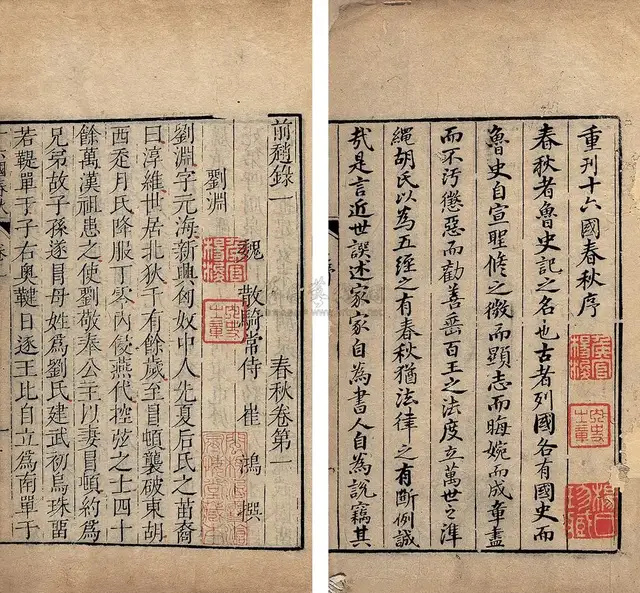 重刊十六國春秋序
春秋者魯史記之名也古者列國各有國史而
魯史自宣聖修之微而顯志而晦婉而成章盡
而不汚懲惡而勸善垂百王之法度立萬世之準
繩胡氏以為五經之有春秋猶法律之有斷例誠
㢤是言近世誤述家家自為書人自為說竊其
前趙錄一 春秋卷第一
魏 散騎常侍 崔鴻 撰
劉淵
劉淵字元海新興匈奴中人先夏后氏之苗裔
曰淳維世居北狄千有餘歲至冒頓襲破東胡
西走月氏降服丁零內侵燕代控弦之士四十
餘萬漢祖患之使劉敬奉公主以妻冒頓約爲
兄弟故子孫遂冒母姓爲劉氏建武初烏珠畱
若鞮單于子右奧鞬日逐王比自立爲南單于
六國春秋